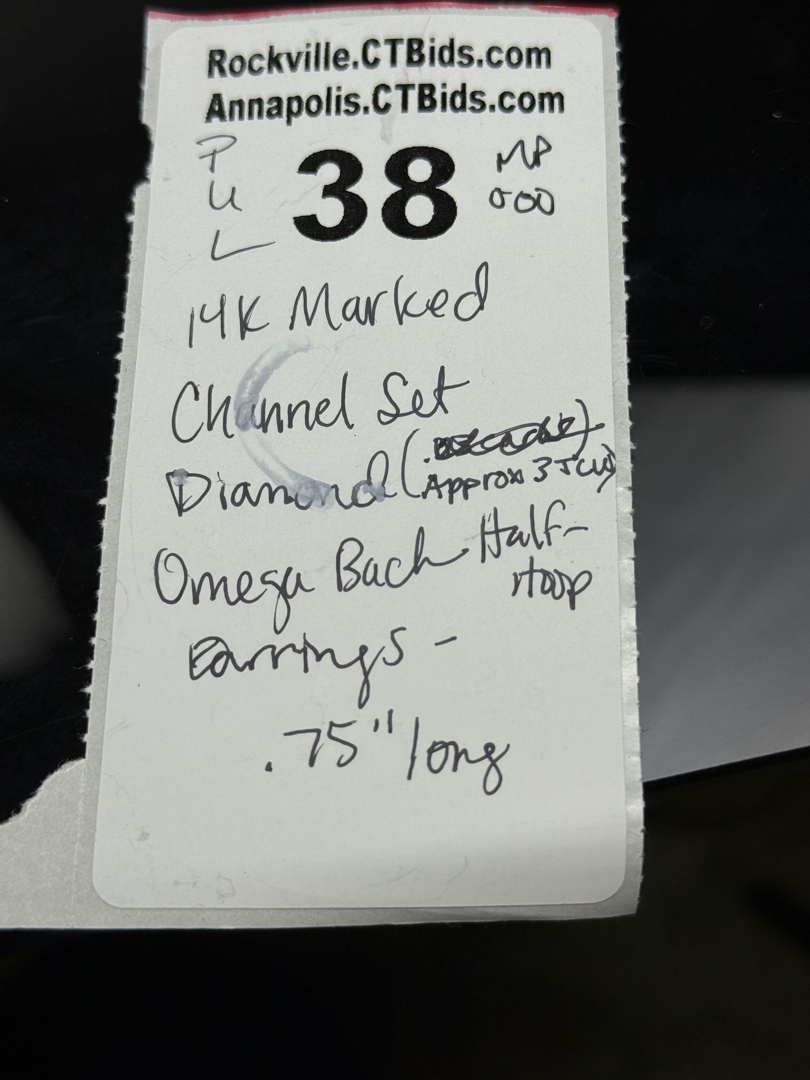 Rockville.CTBids.com
Annapolis.CTBids.com
PUL
38
MP
14K Marked
Channel Set
Diamond (
Approx 3
Omega Back Half-
Hoop
Earrings -
.75" long